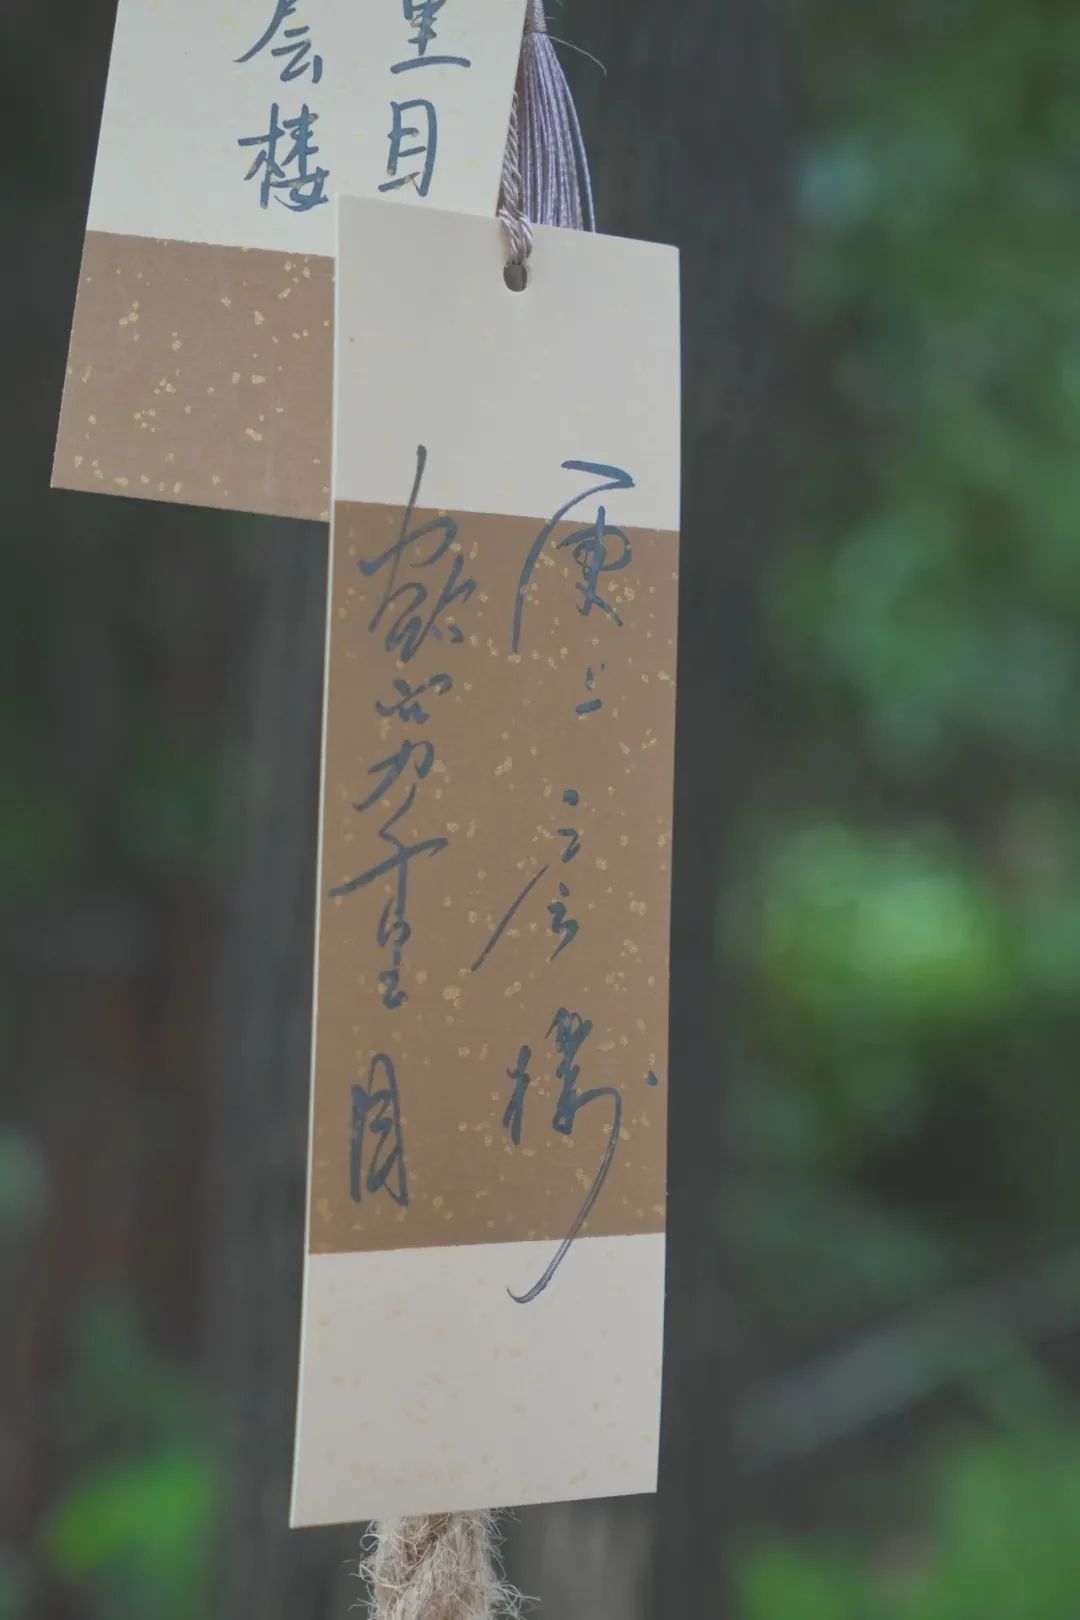 里目
层楼
欲穷千里目
更上一层樓